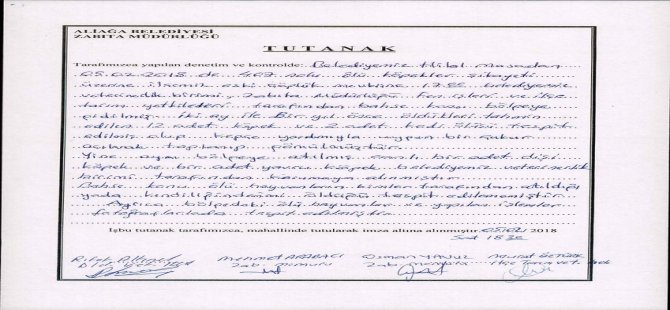 ALİAĞA BELEDİYESİ
ZABITA MÜDÜRLÜĞÜ
TUTANAK
Tarafımızca yapılan denetim ve kontrolde: Belediyemiz Masadan
05.02.2018 de 407 nolu ölü köpekler şikayeti
üzerine İlçemiz eski çöplük mevkine belediyemiz
veterinerlik birimi, Zabıta Müdürlüğü, Fen işleri ve ilçe
tarım yetkilileri tarafından bahse konu bölgeye
gidilmiş. İki ay ile Bir yıl önce öldükleri tahmin
edilen 12 adet köpek ve 2 adet kedi ölüsü tespit
edilmiş olup kepçe yardımıyla çukur
açılarak toplanıp gömülmüştür.
Yine aynı bölgeye atılmış canlı bir adet dişi
köpek ve bir adet yavru köpek belediyemiz veterinerlik
birimi tarafından korumaya alınmıştır.
Bahse konu ölü hayvanların kimler tarafından atıldığı
yada kendiliğinden öldüğü tespit edilememiştir.
Ayrıca bölgedeki ölü hayvanlar ve yapılan işlemler
fotoğraflarla tespit edilmiştir.
İşbu tutanak tarafımızca, mahallinde tutularak imza altına alınmıştır. 05/02/ 2018
Mehmet Osman YAVUZ Murat ÖZTÜRK
Zab. memuru Zab. İlçe Tarım